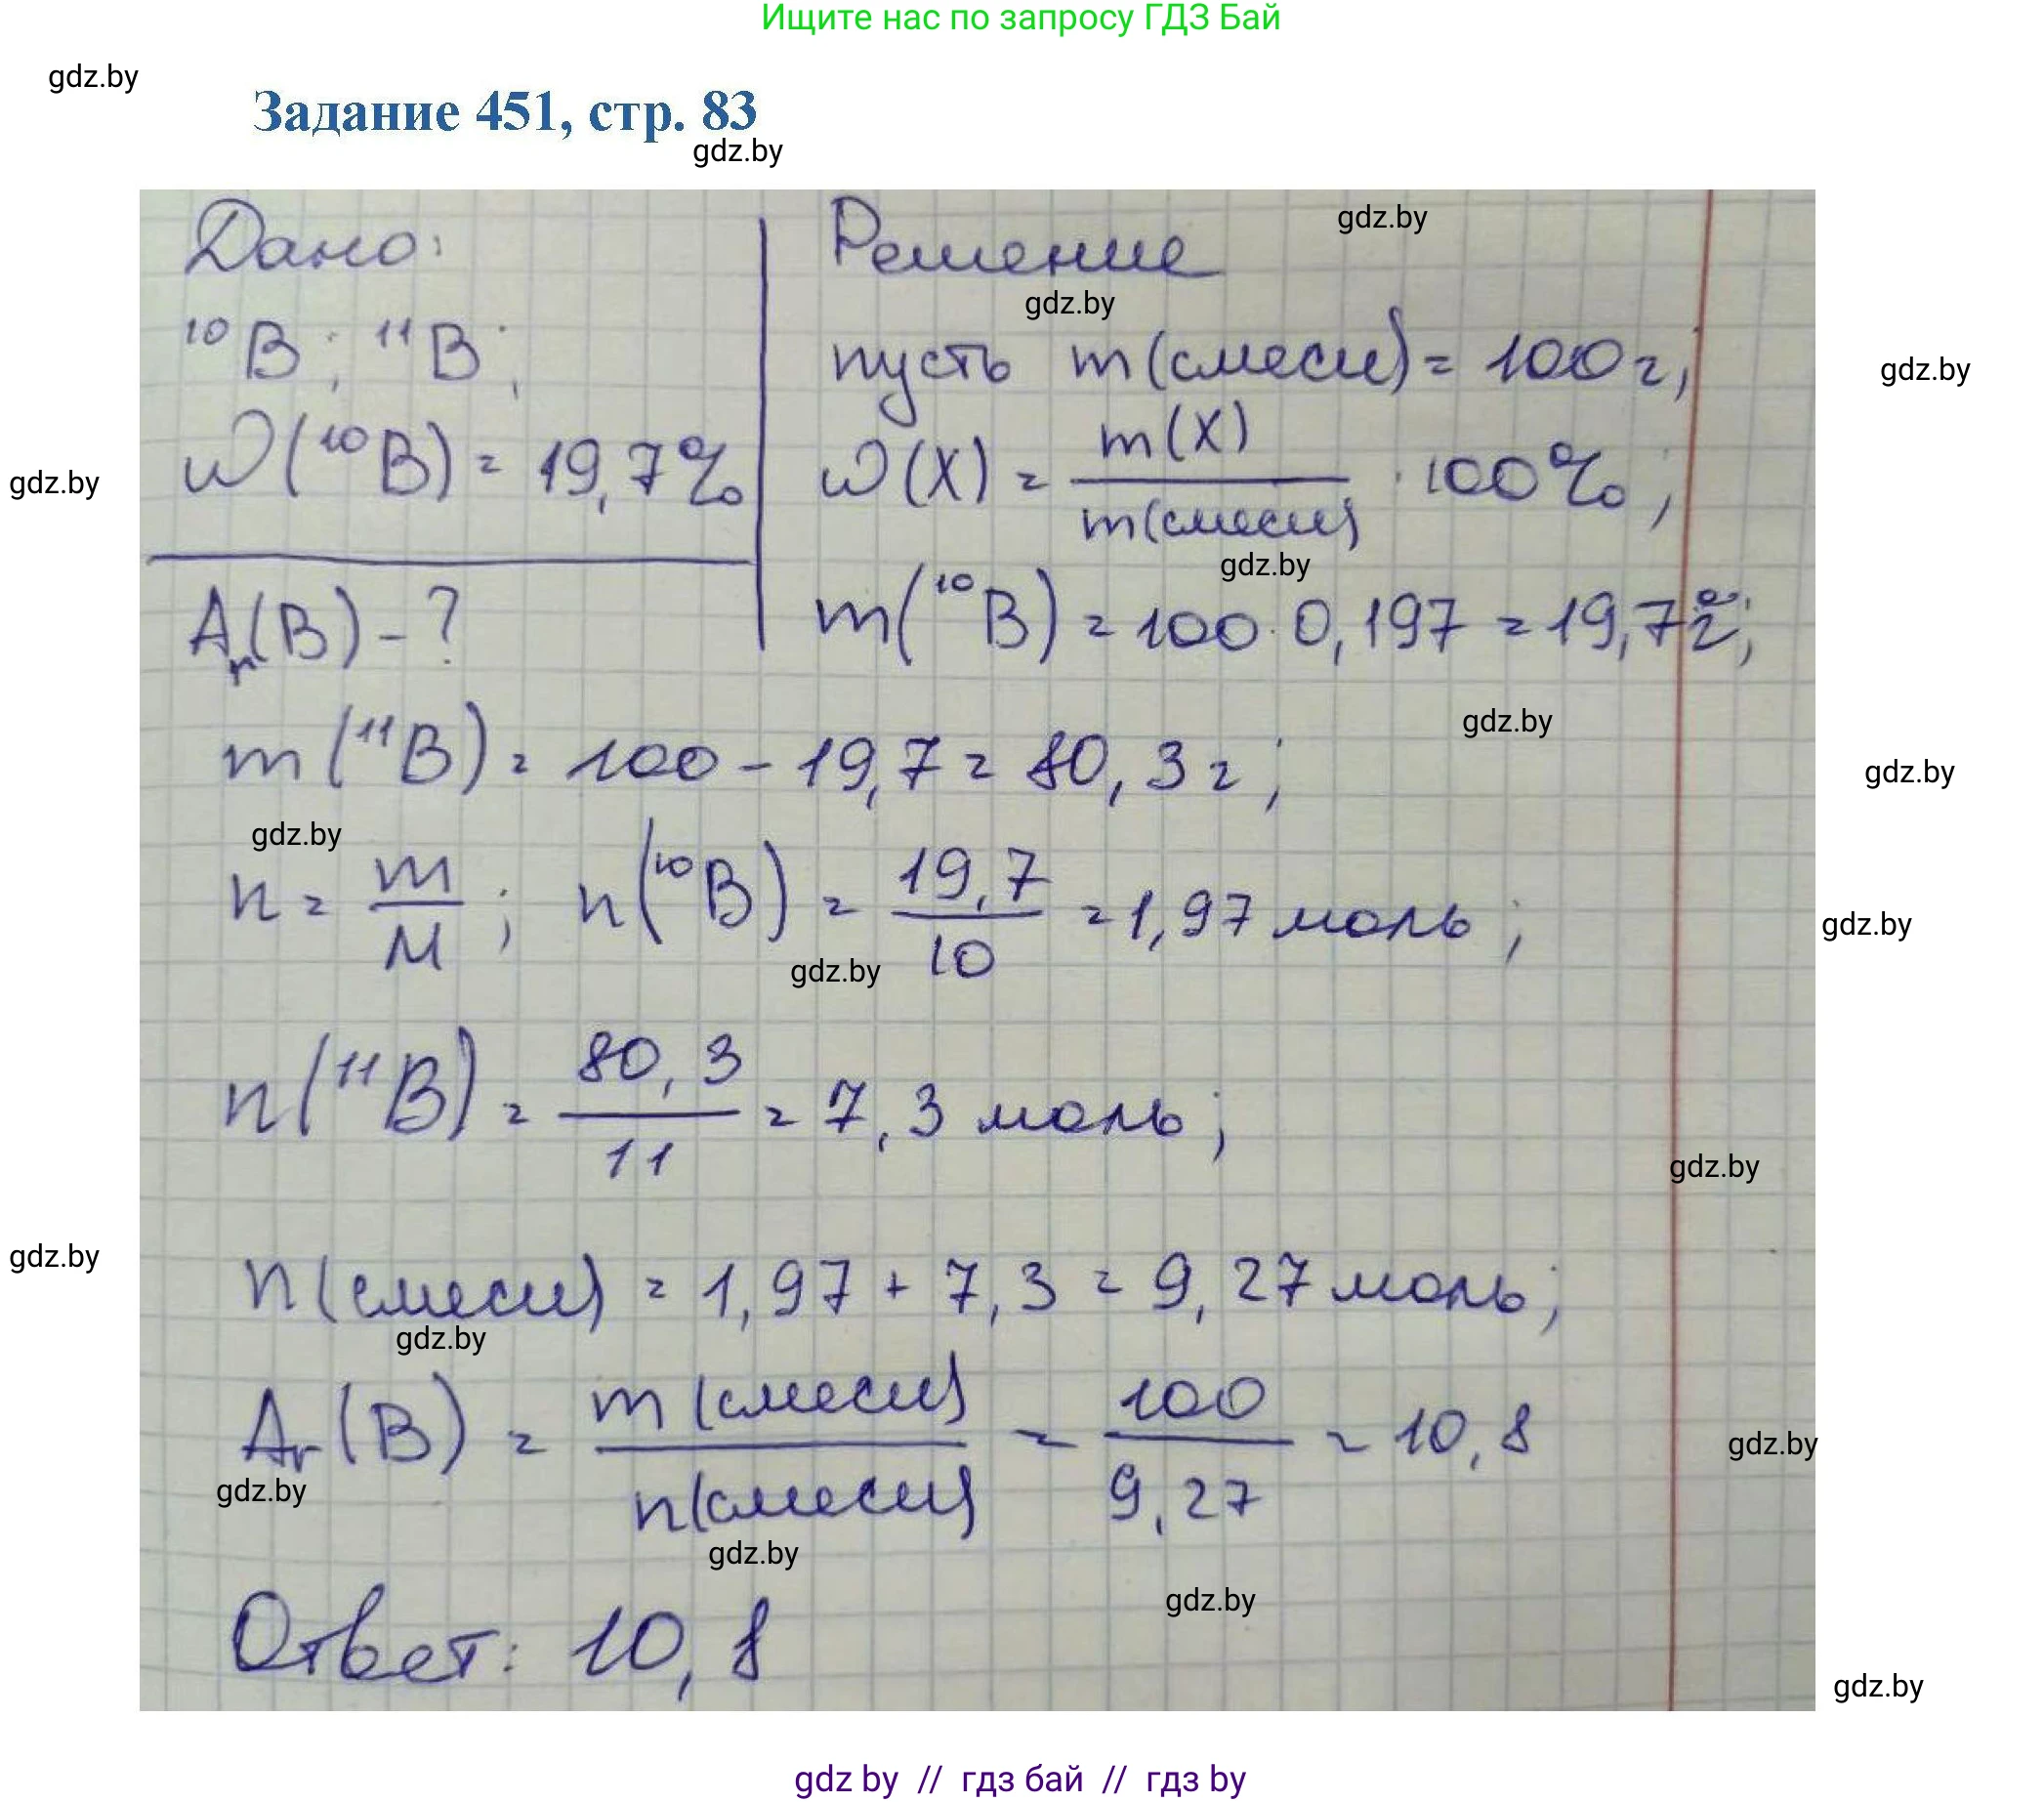 Ищите нас по запросу ГДЗ Бай
gdz.by
Задание 451, стр. 83
gdz.by
Дано:
¹⁰B; ¹¹B;
ω(¹⁰B) = 19,7%
Ar(B) - ?
Решение
gdz.by
gdz.by
пусть m(смеси) = 100 г;
gdz.by
ω(X) = m(X) / m(смеси) · 100%;
gdz.by
gdz.by
m(¹⁰B) = 100 · 0,197 = 19,7 г;
gdz.by
m(¹¹B) = 100 - 19,7 = 80,3 г;
gdz.by
gdz.by
n = m / M; n(¹⁰B) = 19,7 / 10 = 1,97 моль;
gdz.by
gdz.by
n(¹¹B) = 80,3 / 11 = 7,3 моль;
gdz.by
gdz.by
n(смеси) = 1,97 + 7,3 = 9,27 моль;
gdz.by
Ar(B) = m(смеси) / n(смеси) = 100 / 9,27 = 10,8
gdz.by
gdz.by
gdz.by
gdz.by
Ответ: 10,8
gdz.by
gdz by // гдз бай // гдз by